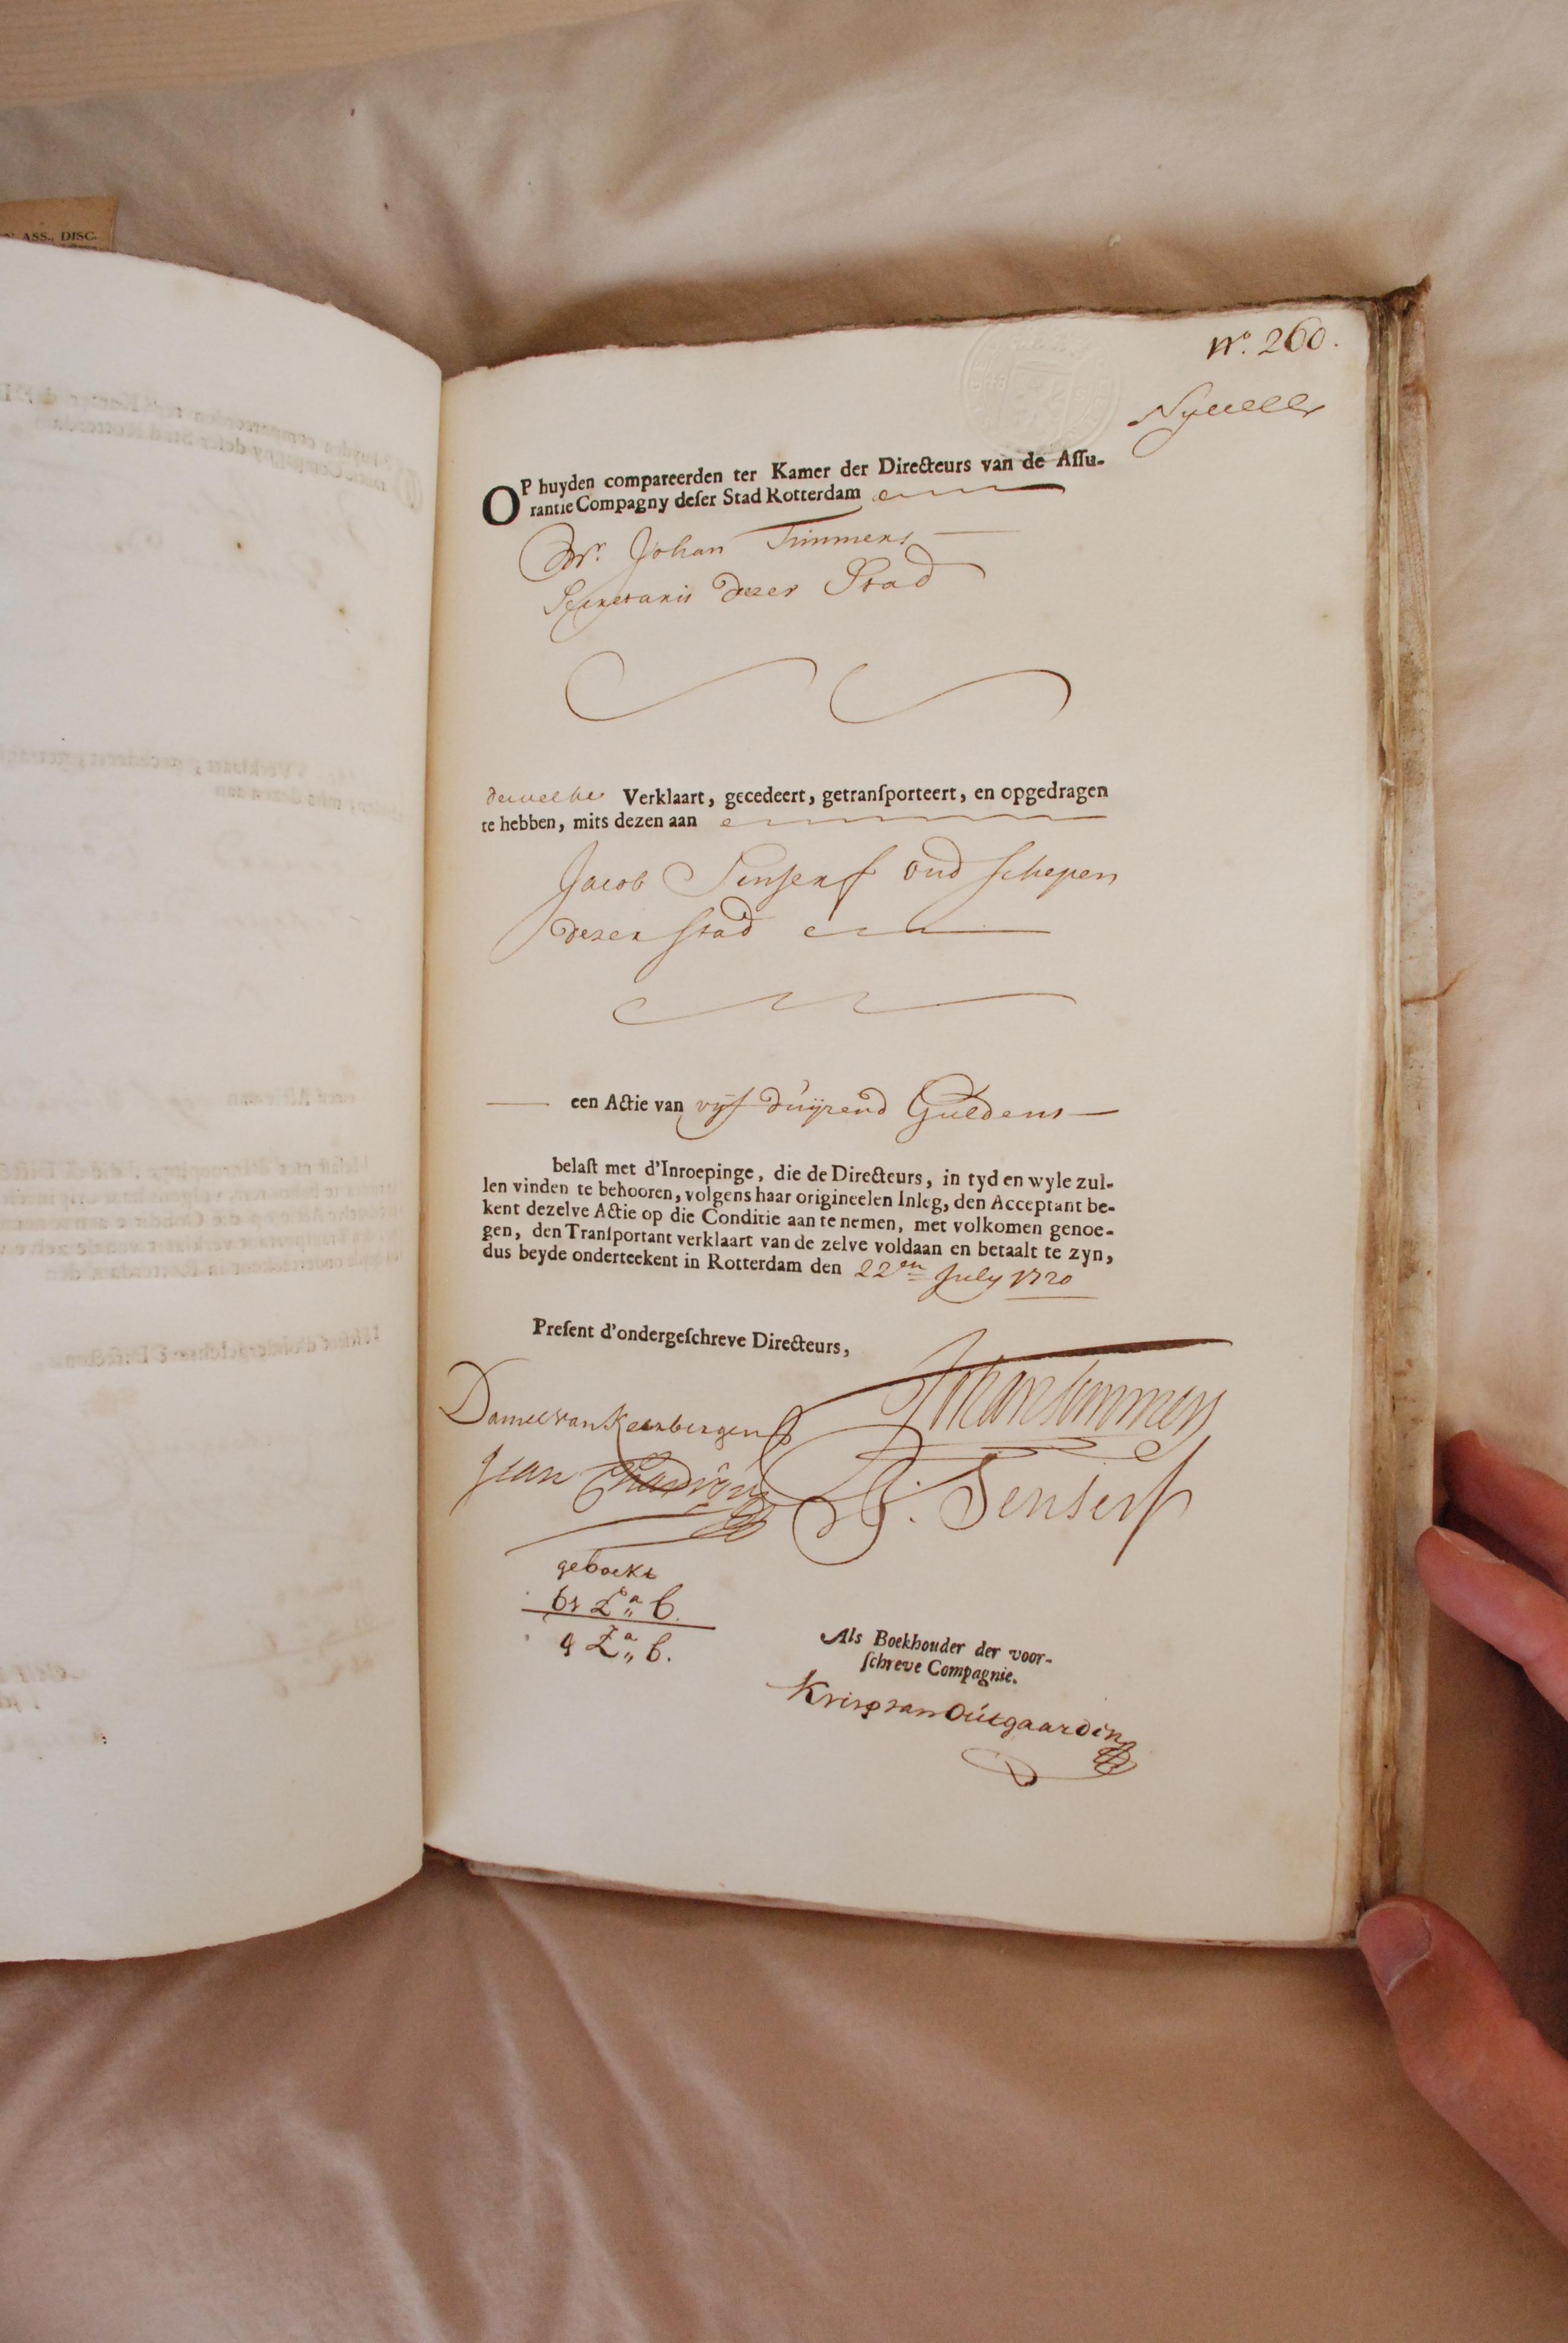 ASS., DISC.
No. 260.
OP huyden compareerden ter Kamer der Directeurs van de Assu-
rantie Compagny deser Stad Rotterdam
Mr. Johan Timmers
Secretaris dezer Stad
dewelke Verklaart, gecedeert, getransporteert, en opgedragen
te hebben, mits dezen aan
Jacob Senserf oud schepen
dezer stad
een Actie van vijf duijzend Guldens
belast met d'Inroepinge, die de Directeurs, in tyd en wyle zul-
len vinden te behooren, volgens haar origineelen Inleg, den Acceptant be-
kent dezelve Actie op die Conditie aan te nemen, met volkomen genoe-
gen, den Transportant verklaart van de zelve voldaan en betaalt te zyn,
dus beyde onderteekent in Rotterdam den 22en July 1720
Present d'ondergeschreve Directeurs,
Johan Timmers
Daniel van Keerbergen
Jean
J. Senserf
geboekt
La b.
La b.
Als Boekhouder der voor-
schreve Compagnie.
Krisp van Outgaarden